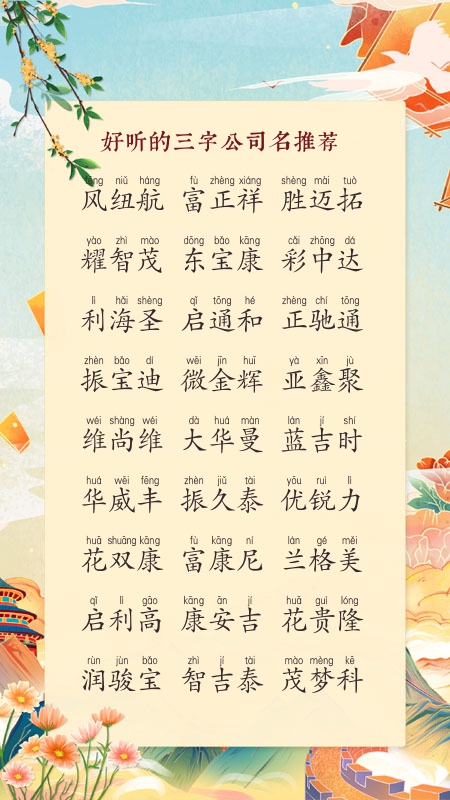 好听的三字公司名推荐
fēng niǔ háng fù zhèng xiáng shèng mài tuò
风纽航 富正祥 胜迈拓
yào zhì mào dōng bǎo kāng cǎi zhōng dá
耀智茂 东宝康 彩中达
lì hǎi shèng qǐ tōng hé zhèng chí tōng
利海圣 启通和 正驰通
zhèn bǎo dí wēi jīn huī yà xīn jù
振宝迪 微金辉 亚鑫聚
wéi shàng wéi dà huá màn lán jí shí
维尚维 大华曼 蓝吉时
huá wēi fēng zhèn jiǔ tài yōu ruì lì
华威丰 振久泰 优锐力
huā shuāng kāng fù kāng ní lán gé měi
花双康 富康尼 兰格美
qǐ lì gāo kāng ān jí huā guì lóng
启利高 康安吉 花贵隆
rùn jùn bǎo zhì jí tài mào mèng kē
润骏宝 智吉泰 茂梦科